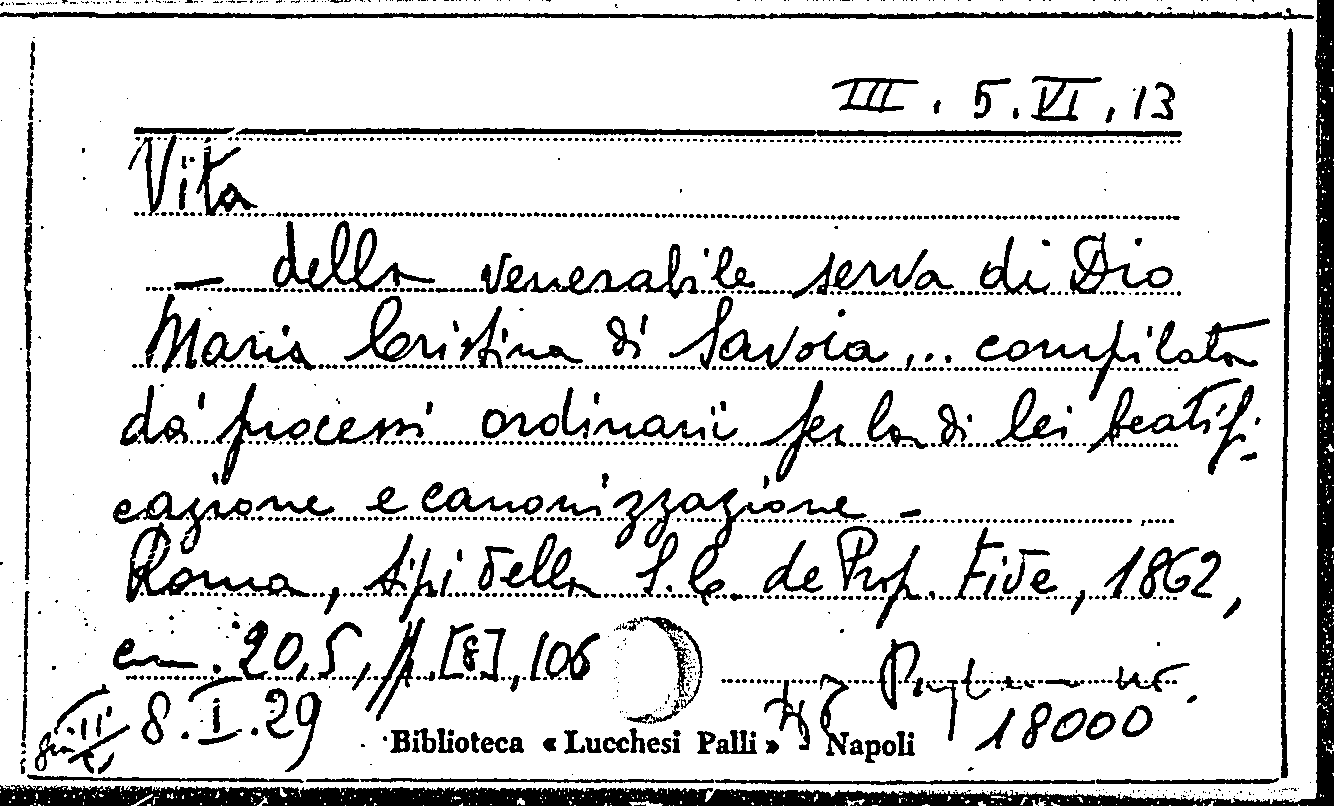 III. 5. VI. 13
Vita
— della venerabile serva di Dio
Maria Cristina di Savoia... compilata
da' processi ordinarii per la di lei beatifi-
cazione e canonizzazione —
Roma, tipi della S. C. de Prop. Fide, 1862,
cm. 20,5, pp. [8], 106
8. I. 29
18000
Biblioteca « Lucchesi Palli » - Napoli